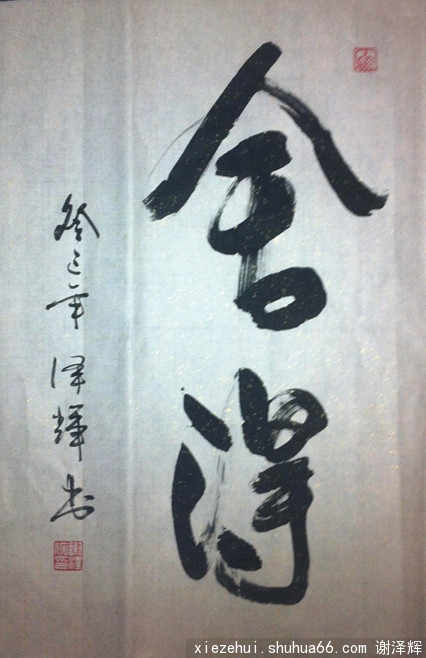 舍得
癸巳年 泽辉书
xiezehui.shuhua66.com 谢泽辉